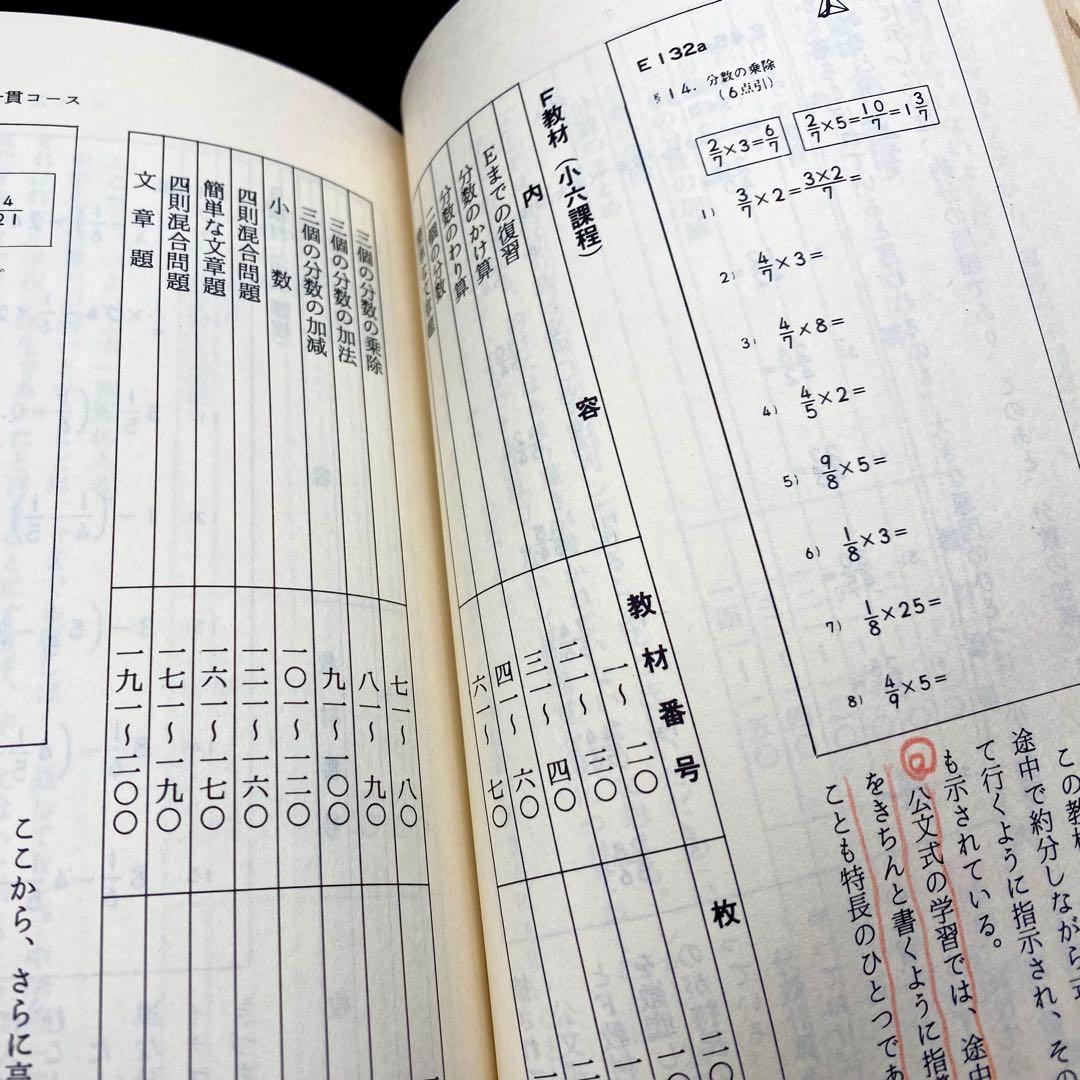 E132a
§14. 分数の乗除
(6点引)
2/7×3=6/7
2/7×5=10/7=1 3/7
1) 3/7×2=3×2/7=
2) 4/7×3=
3) 4/7×8=
4) 4/5×2=
5) 9/8×5=
6) 1/8×3=
7) 1/8×25=
8) 4/9×5=
この教材
途中で約分しながら式
て行くように指示され、その
も示されている。
@公文式の学習では、途中
をきちんと書くように指
ことも特長のひとつであ
F教材(小六課程)
内容
教材番号
枚
Eまでの復習
一〜二〇
二〇
分数のかけ算
二一〜三〇
一〇
分数のわり算
三一〜四〇
二個の分数
四一〜六〇
六一〜七〇
一貫コース
三個の分数の乗除
七一〜八〇
三個の分数の加法
八一〜九〇
三個の分数の加減
九一〜一〇〇
小数
一〇一〜一二〇
四則混合問題
一二一〜一六〇
簡単な文章題
一六一〜一七〇
四則混合問題
一七一〜一九〇
文章題
一九一〜二〇〇
4/21
ここから、さらに高